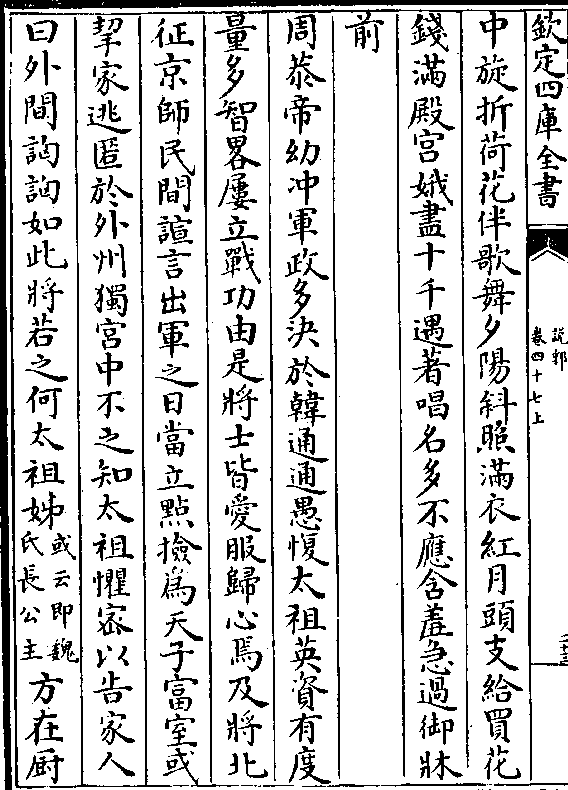 欽定四庫全書
說郛
卷四十七上
中旋折荷花伴歌舞夕陽斜照滿衣紅月頭支給買花
錢滿殿宮娥盡十千遇著唱名多不應含羞急過御牀
前
周恭帝幼冲軍政多決於韓通通愚愎太祖英資有度
量多智畧屢立戰功由是將士皆愛服歸心焉及將北
征京師民間諠言出軍之日當立點撿為天子富室或
挈家逃匿於外州獨宮中不之知太祖懼密以告家人
曰外間訩訩如此將若之何太祖姊或云即魏氏長公主方在厨